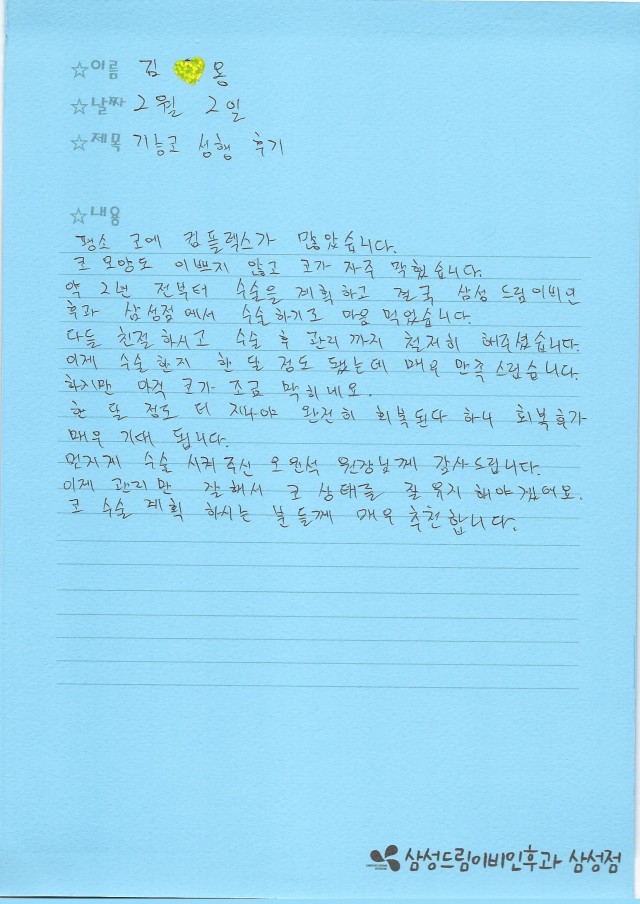 ☆이름 김 몽
☆날짜 2월 2일
☆제목 기능코 성형 후기
☆내용
평소 코에 컴플렉스가 많았습니다.
코 모양도 이쁘지 않고 코가 자주 막혔습니다.
약 2년 전부터 수술을 계획하고 결국 삼성 드림이비인
후과 삼성점에서 수술하기로 마음 먹었습니다.
다들 친절하시고 수술 후 관리까지 철저히 해주셨습니다.
이제 수술한지 한 달 정도 됐는데 매우 만족스럽습니다.
하지만 아직 코가 조금 막히네요.
한 달 정도 더 지나야 완전히 회복된다 하니 회복 후가
매우 기대 됩니다.
멋지게 수술 시켜주신 오완석 원장님께 감사드립니다.
이제 관리만 잘해서 코 상태를 잘 유지 해야겠어요.
코 수술 계획 하시는 분들께 매우 추천합니다.
삼성드림이비인후과 삼성점